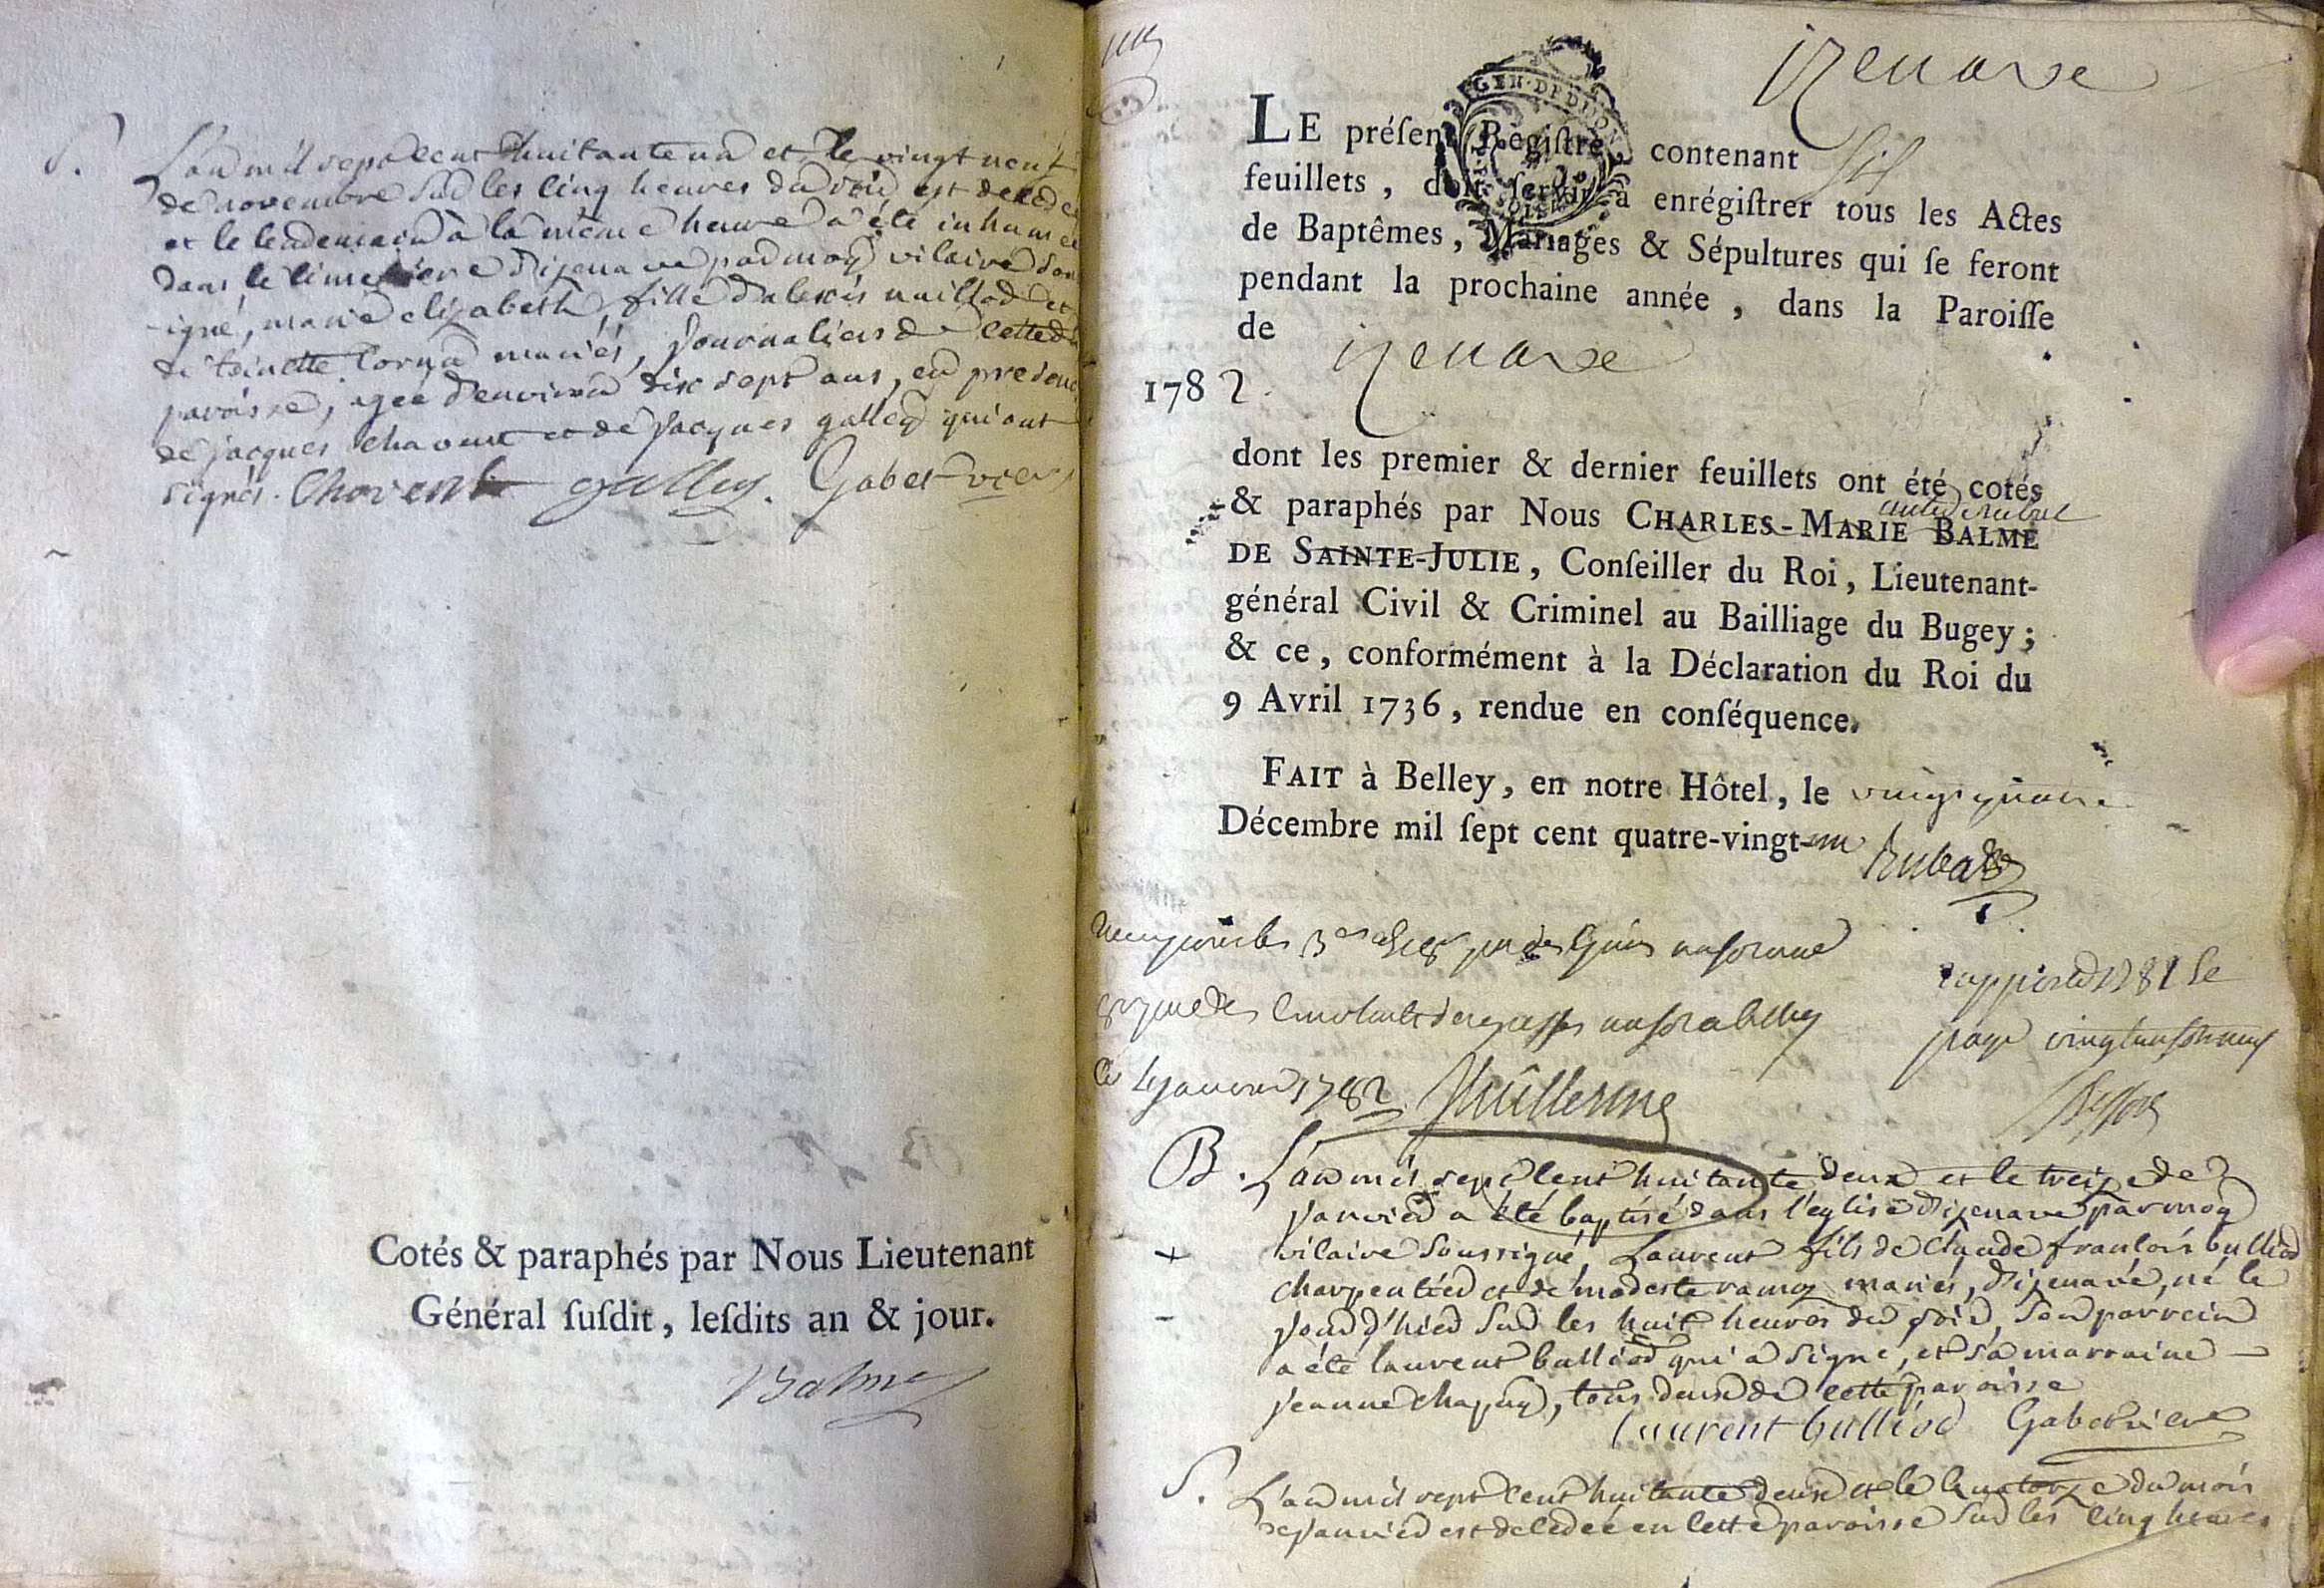 S. L'an mil sept cent huitante un et le vingt neuf
de novembre sur les cinq heures du soir est decedee
et le lendemain à la même heure a été inhumée
dans le cimetiere d'izenave par moy vicaire sous
-signé, marie elizabeth, fille d'alexis nuillod et
de toinette Cornu mariés, journaliers de cette d
paroisse, agée d'environ dix sept ans, en presence
de jacques Chavent et de Jacques galley qui ont
signés. Chavent galley. Gabet vic
Cotés & paraphés par Nous Lieutenant
Général ſuſdit, leſdits an & jour.
Balme
izenave
GEN. DE DIJON
LE préſent Regiſtre, contenant six
feuillets, doit ſervir à enrégiſtrer tous les Actes
de Baptêmes, Mariages & Sépultures qui ſe feront
pendant la prochaine année, dans la Paroiſſe
de izenave
1782.
dont les premier & dernier feuillets ont été cotés
& paraphés par Nous CHARLES-MARIE BALME
DE SAINTE-JULIE, Conſeiller du Roi, Lieutenant-
général Civil & Criminel au Bailliage du Bugey;
& ce, conformément à la Déclaration du Roi du
9 Avril 1736, rendue en conſéquence.
FAIT à Belley, en notre Hôtel, le vingt quatre
Décembre mil ſept cent quatre-vingt-un
rapporté 1781 le
page
ce 4 janvier 1782 Guillerme
B. L'an mil sept cent huitante deux et le treize de
Janvier a été baptisé dans l'église d'izenave par moy
vicaire soussigné, Laurent fils de Claude françois bulliod
charpentier et de modeste ramoz mariés, d'izenave, né le
jour d'hier sur les huit heures du soir, son parrein
a été laurent bulliod qui a signé, et sa marraine
jeanne chapuy, tous deux de cette paroisse
laurent bulliod Gabet vicaire
S. L'an mil sept cent huitante deux et le quatorze du mois
de janvier est decedée en cette paroisse sur les cinq heures